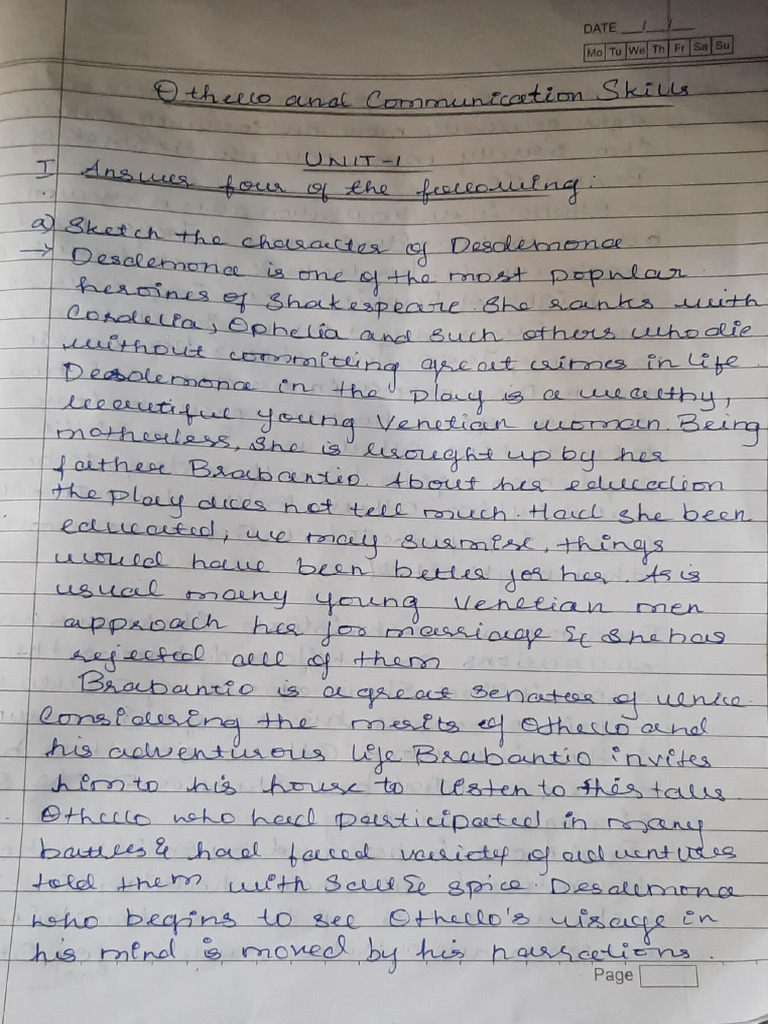 DATE __/__/__
Mo Tu We Th Fr Sa Su
Othello and Communication Skills
UNIT-1
I Answer four of the following:
a) Sketch the character of Desdemona
→ Desdemona is one of the most popular
heroines of Shakespeare. She ranks with
Cordelia, Ophelia and such others who die
without committing great crimes in life.
Desdemona in the play is a wealthy,
beautiful young Venetian woman. Being
motherless, she is brought up by her
father Brabantio. About her education
the play does not tell much. Had she been
educated, we may surmise, things
would have been better for her. As is
usual many young Venetian men
approach her for marriage & she has
rejected all of them.
Brabantio is a great senator of Venice.
Considering the merits of Othello and
his adventurous life Brabantio invites
him to his house to listen to his tales
Othello who had participated in many
battles & had faced variety of adventures
told them with salt & spice. Desdemona
who begins to see Othello's visage in
his mind is moved by his narrations.
Page